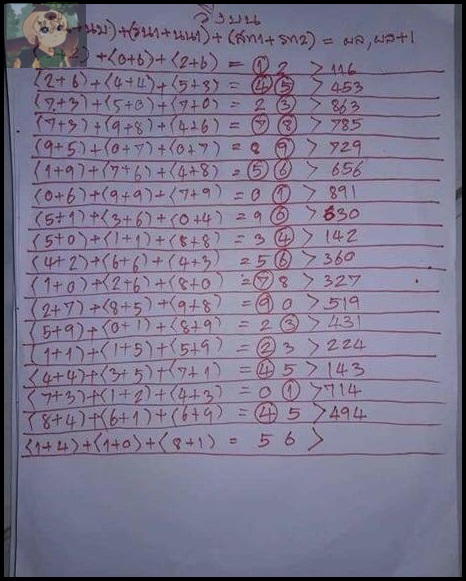 วิ่งบน
นบ)+(วน1+นน1)+(สท1+รท2) = ผล,ผล+1
)+(0+6)+(2+6) = 1 2 > 116
(2+6)+(4+4)+(5+8) = 4 5 > 453
(7+3)+(5+0)+(7+0) = 2 3 > 863
(7+3)+(9+8)+(4+6) = 7 8 > 785
(9+5)+(0+7)+(0+7) = 8 9 > 729
(1+9)+(7+6)+(4+8) = 5 6 > 656
(0+6)+(9+9)+(7+9) = 0 1 > 891
(5+1)+(3+6)+(0+4) = 9 0 > 630
(5+0)+(1+1)+(8+8) = 3 4 > 142
(4+2)+(6+6)+(4+3) = 5 6 > 360
(1+0)+(2+6)+(8+0) = 7 8 > 327
(2+7)+(8+5)+(9+8) = 9 0 > 519
(5+9)+(0+1)+(8+9) = 2 3 > 431
(1+1)+(1+5)+(5+9) = 2 3 > 224
(4+4)+(3+5)+(7+1) = 4 5 > 143
(7+3)+(1+2)+(4+3) = 0 1 > 714
(8+4)+(6+1)+(6+9) = 4 5 > 494
(1+4)+(1+0)+(8+1) = 5 6 >